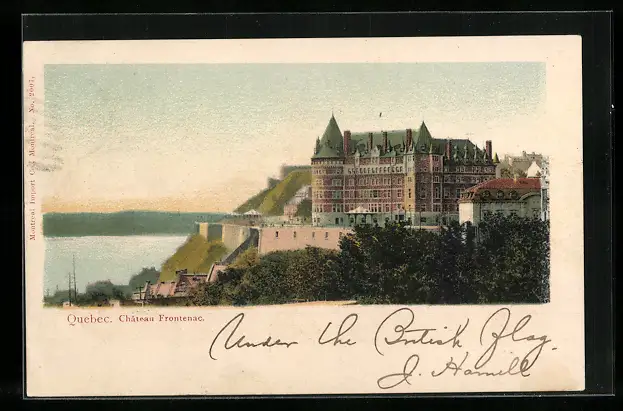 Montreal Import Co., Montreal. No. 2007.
Quebec. Château Frontenac.
Under the British Flag.
J. Hamell